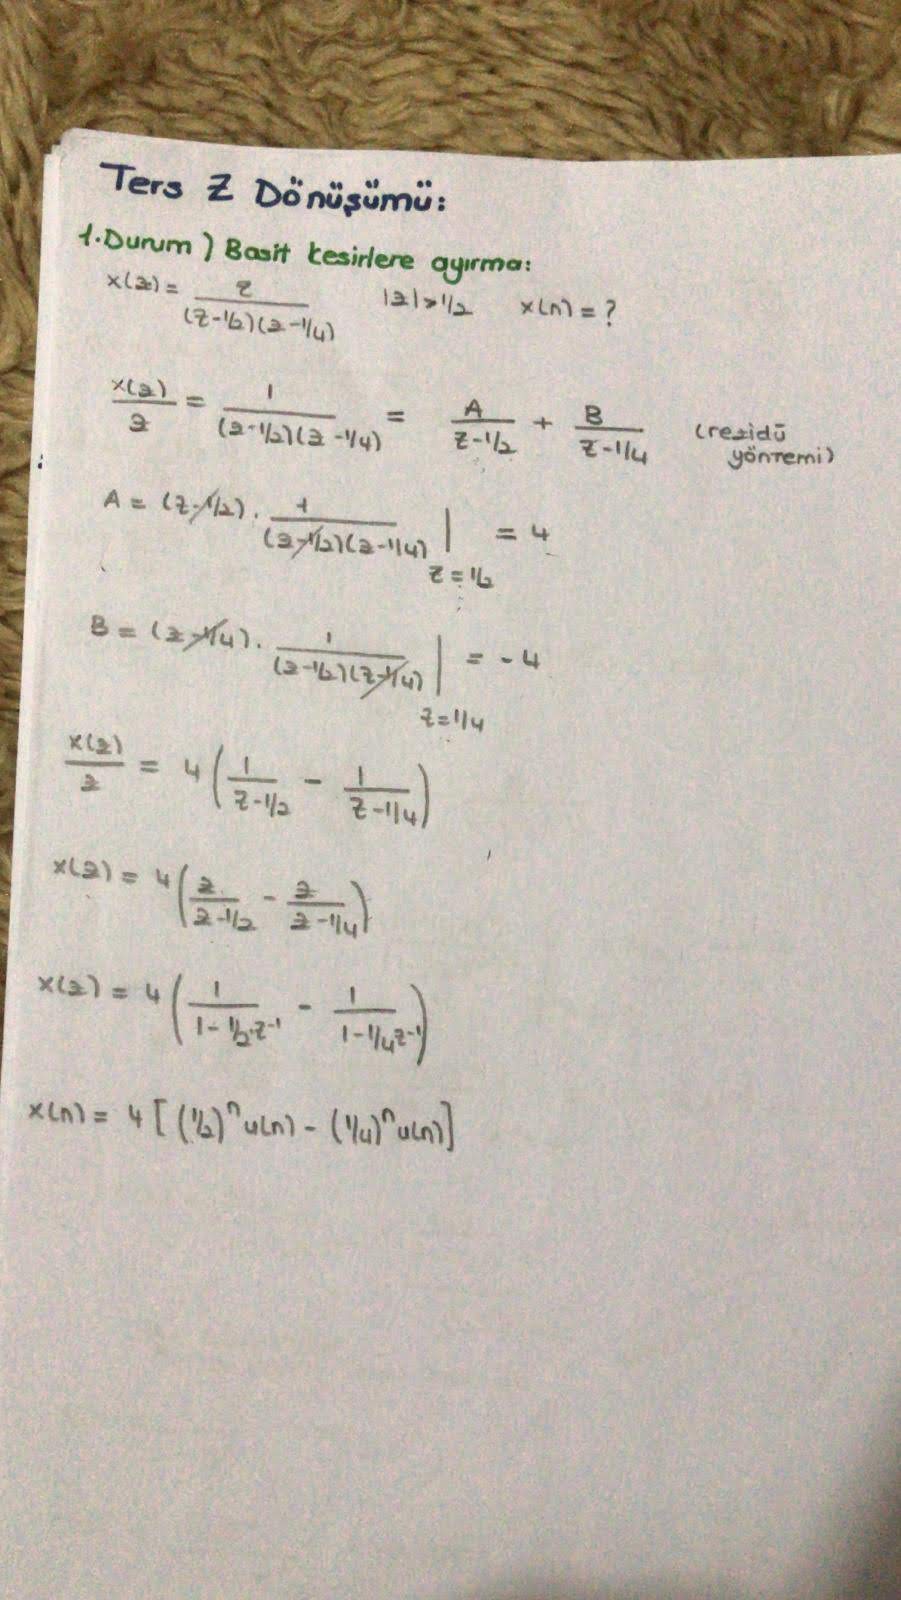 Ters Z Dönüşümü:
1.Durum) Basit kesirlere ayırma:
x(z) = z / (z-1/2)(z-1/4)    |z|>1/2    x(n) = ?
x(z)/z = 1 / (z-1/2)(z-1/4) = A / z-1/2 + B / z-1/4 (rezidü
yöntemi)
A = (z-1/2) . 1 / (z-1/2)(z-1/4) | = 4
z=1/2
B = (z-1/4) . 1 / (z-1/2)(z-1/4) | = -4
z=1/4
x(z)/z = 4 ( 1 / z-1/2 - 1 / z-1/4 )
x(z) = 4 ( z / z-1/2 - z / z-1/4 )
x(z) = 4 ( 1 / 1-1/2.z⁻¹ - 1 / 1-1/4z⁻¹ )
x(n) = 4 [ (1/2)ⁿ u(n) - (1/4)ⁿ u(n) ]